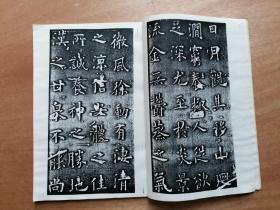 日月觀其移山迴
澗窮泰極人從欲
足深尤至於炎景
流金無鬱蒸之氣
微風徐動有淒清
之涼信安體之佳
所誠養神之勝地
漢之甘泉不能尚